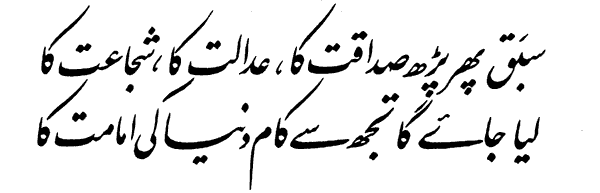 سبَق پھر پڑھ صداقت کا، عدالت کا، شجاعت کا
لیا جائے گا تجھ سے کام دُنیا کی امامت کا